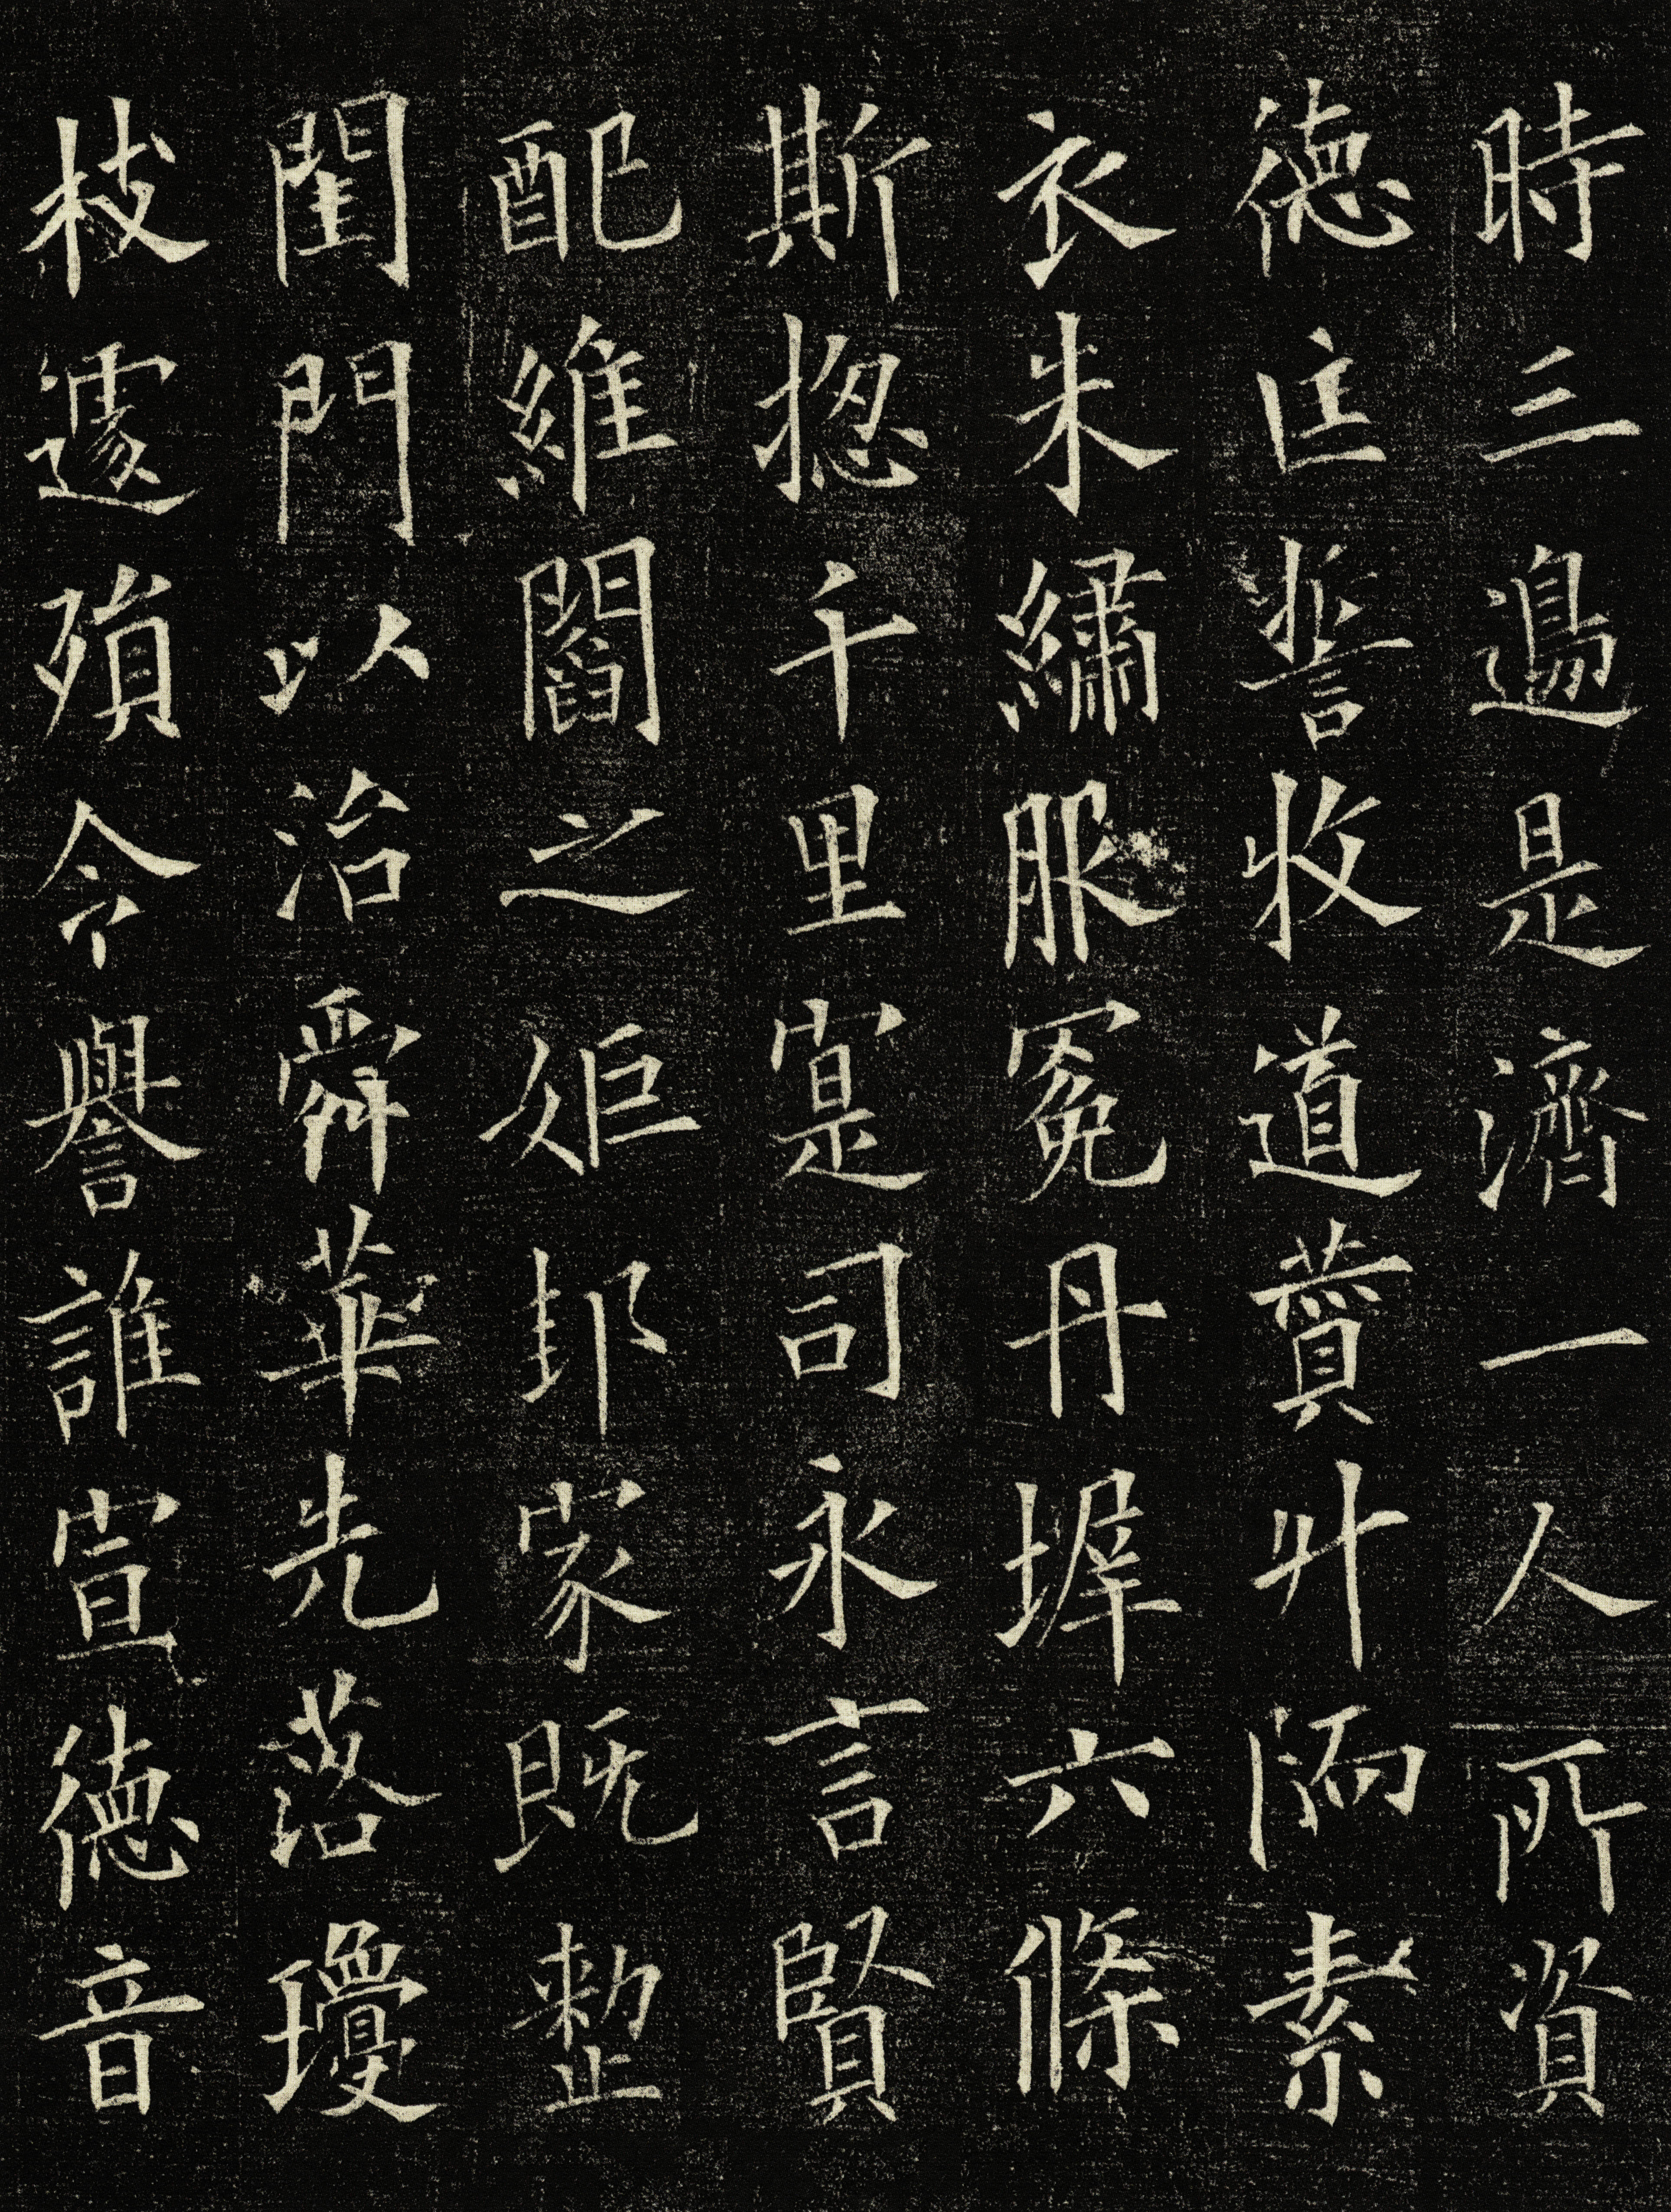 時三邊是濟一人所資
德匡誓牧道贊升陑素
衣朱繡服冕丹墀六條
斯揔千里寔司永言賢
配維閻之姬邦家既整
閨門以治舜華先落瓊
枝遽殞令譽誰宣德音